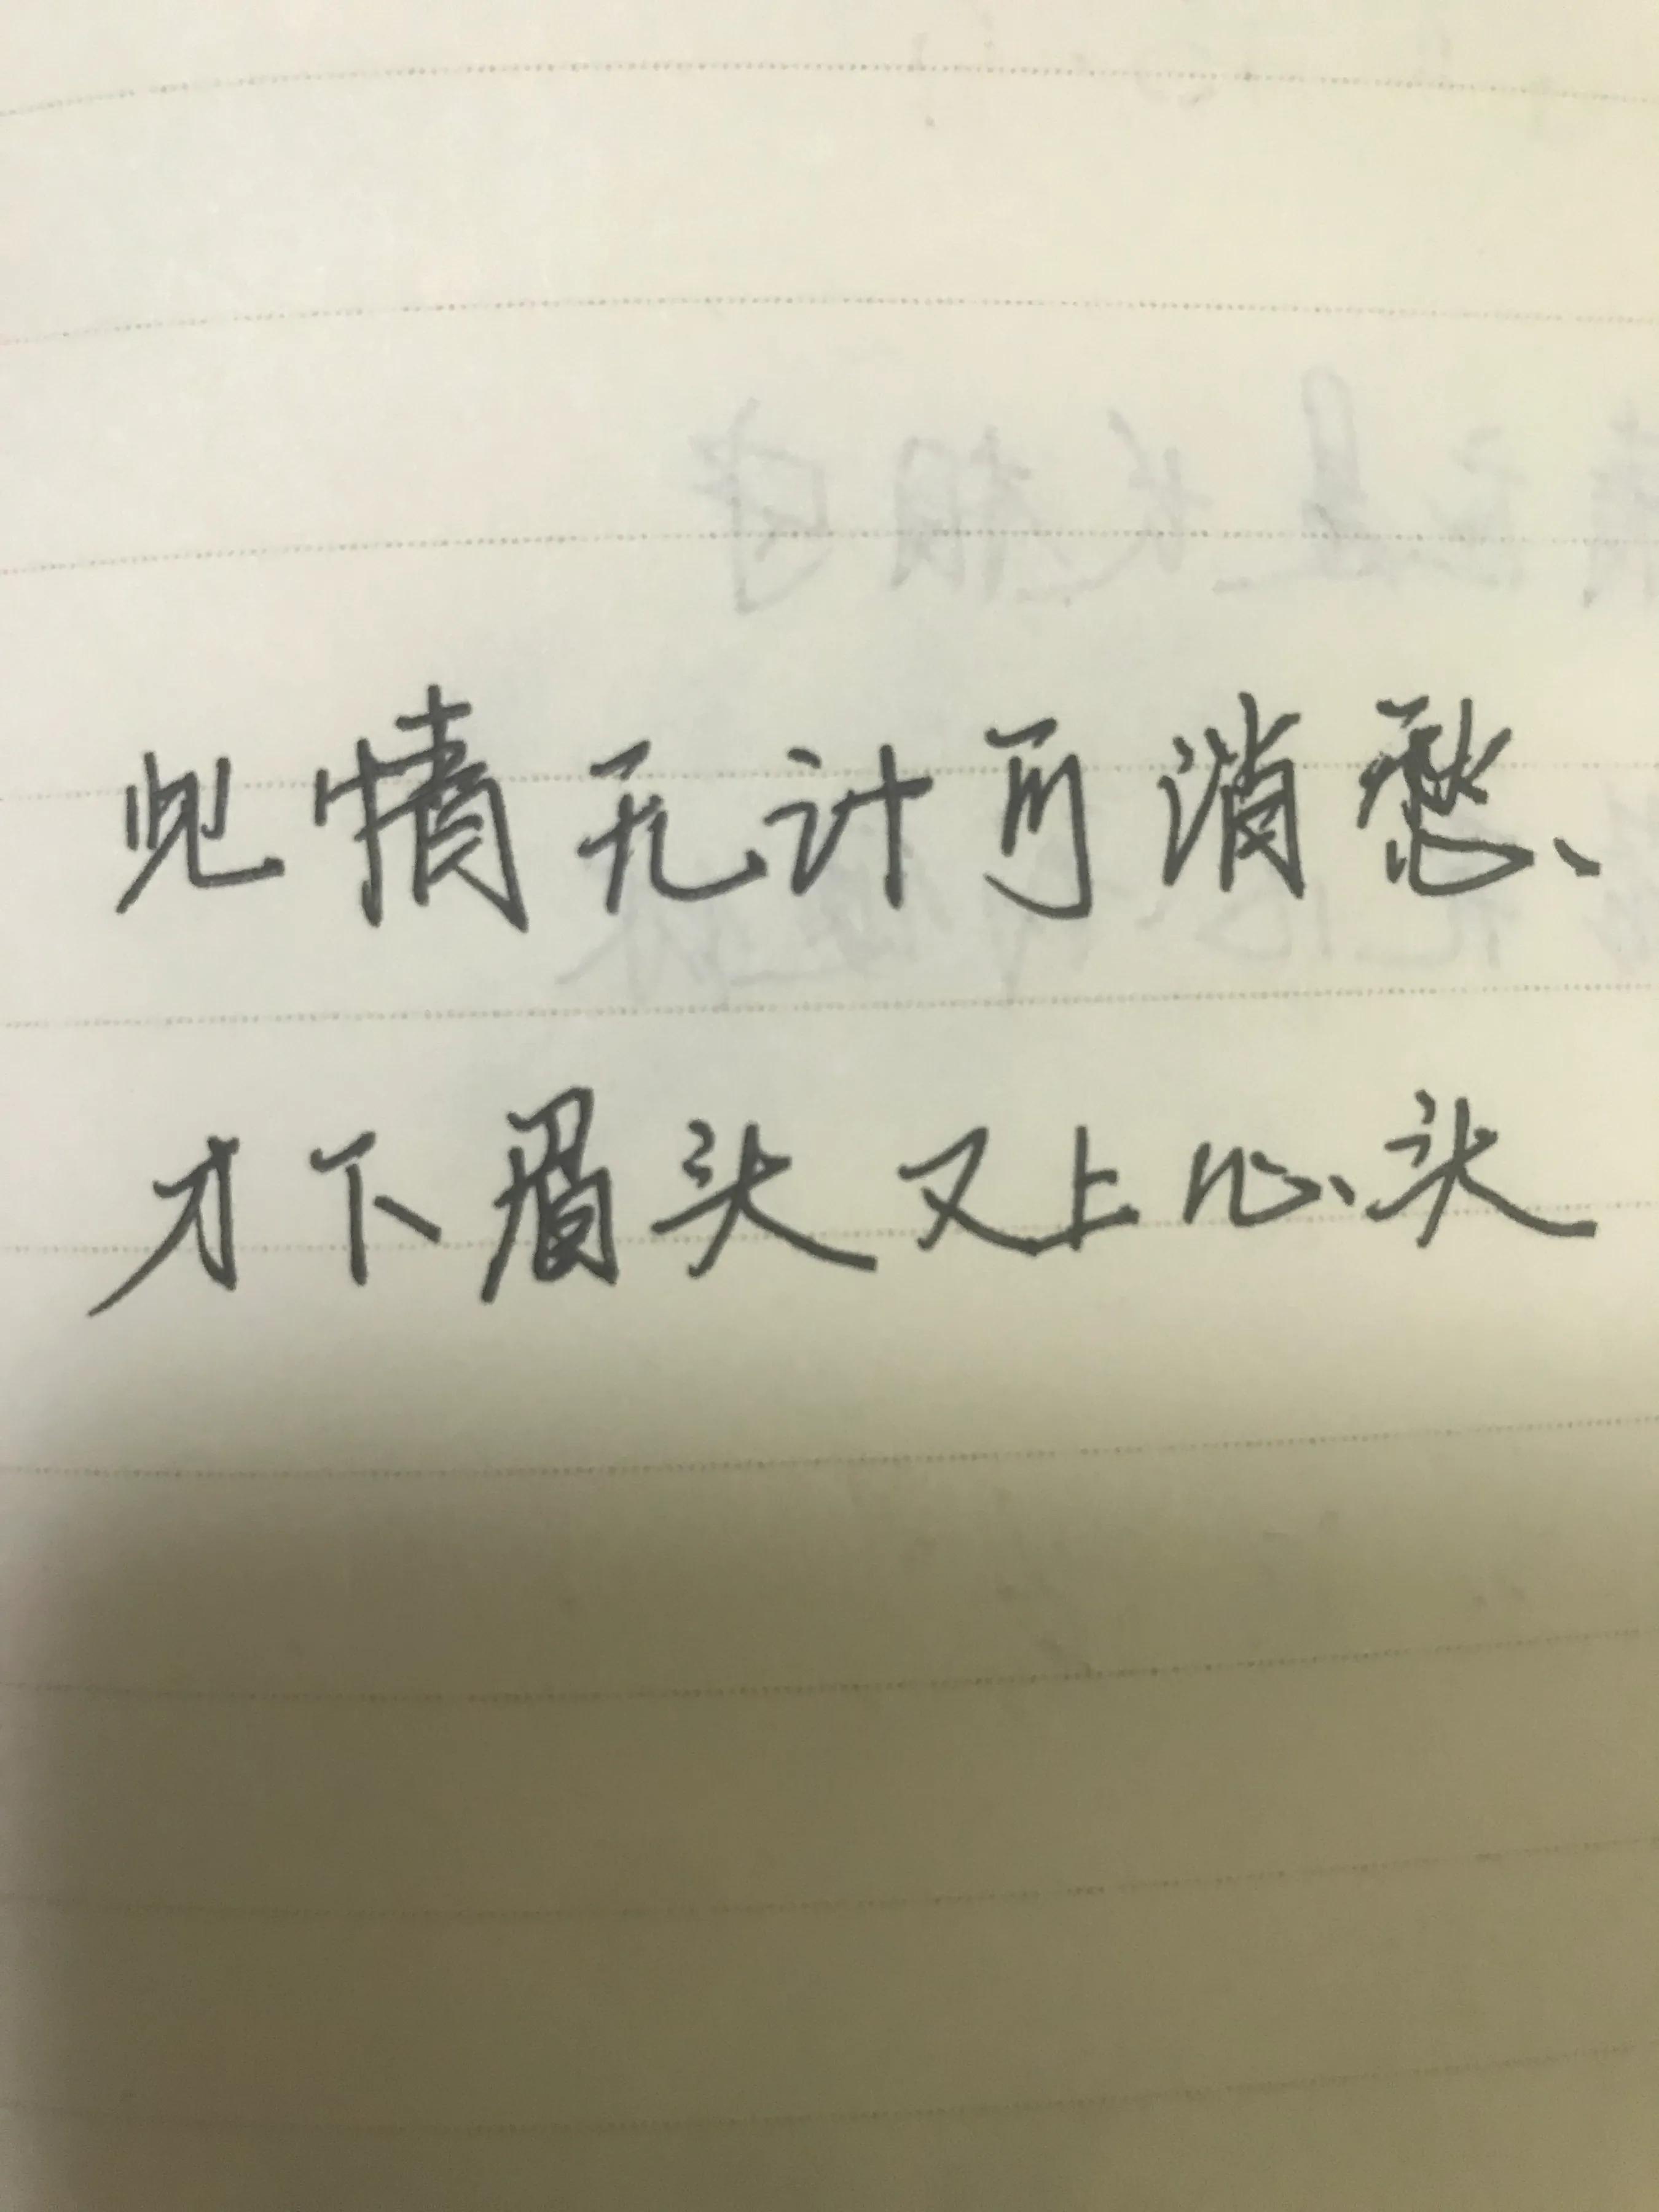 此情无计可消愁
才下眉头又上心头